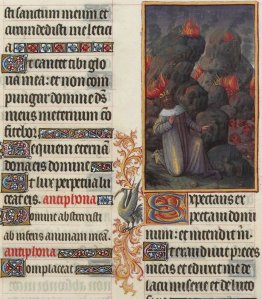 sti sactum meum et
circundedisti me leticia
Ut cantet tibi gloria
mea: et non compungar
domine deus
meus in eternum confitebor
Requiem eternam
dona eis domine
Et lux perpetua luceat
eis. antiphona
Domine abstraxisti
ab inferis animam meam.
antiphona
Complaceat
Expectans expectavi
dominum:
et intendit michi
Et exaudivit preces
meas et eduxit me de
lacu miserie et de luto